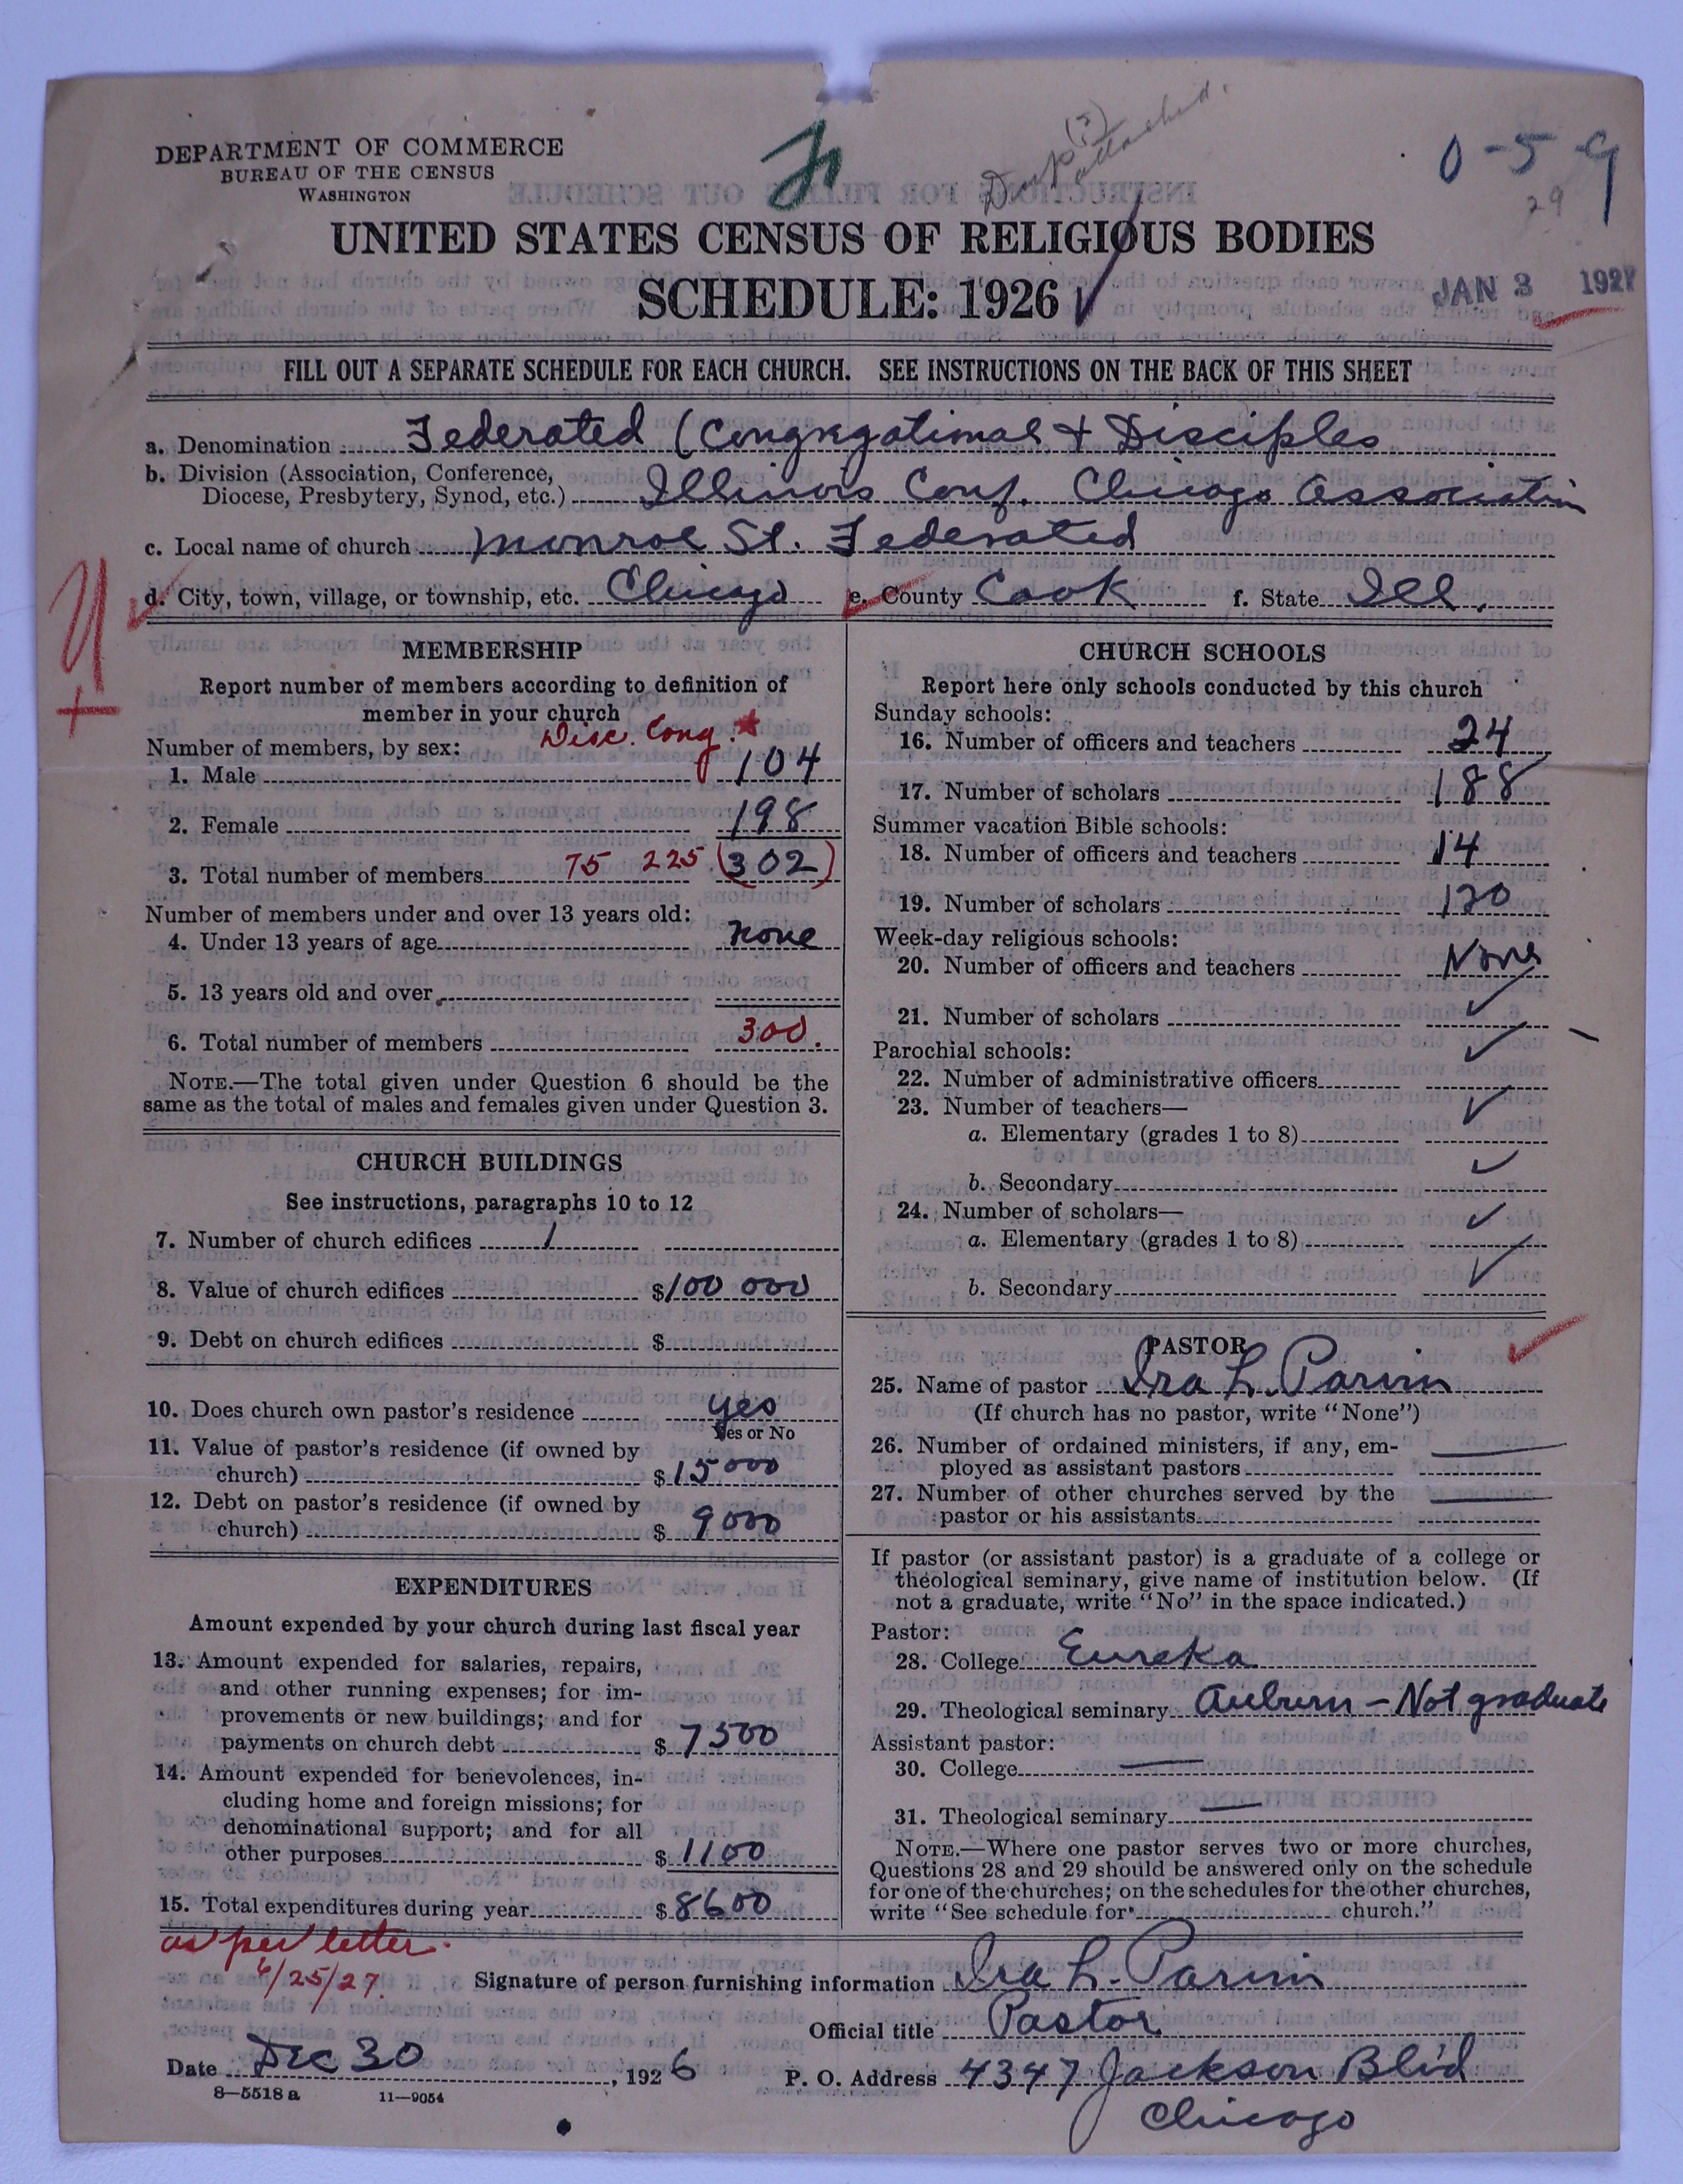 DEPARTMENT OF COMMERCE
BUREAU OF THE CENSUS
WASHINGTON
attached.
0-5-9
29
UNITED STATES CENSUS OF RELIGIOUS BODIES
SCHEDULE: 1926
JAN 3 1927
FILL OUT A SEPARATE SCHEDULE FOR EACH CHURCH. SEE INSTRUCTIONS ON THE BACK OF THIS SHEET
a. Denomination Federated (Congregational + Disciples
b. Division (Association, Conference,
Diocese, Presbytery, Synod, etc.) Illinois Conf. Chicago Association
c. Local name of church Monroe St. Federated
d. City, town, village, or township, etc. Chicago e. County Cook f. State Ill.
MEMBERSHIP
Report number of members according to definition of
member in your church
Disc. Cong.
Number of members, by sex:
1. Male 104
2. Female 198
3. Total number of members 75 225 (302)
Number of members under and over 13 years old:
4. Under 13 years of age none
5. 13 years old and over
6. Total number of members 300.
NOTE.—The total given under Question 6 should be the
same as the total of males and females given under Question 3.
CHURCH BUILDINGS
See instructions, paragraphs 10 to 12
7. Number of church edifices 1
8. Value of church edifices $100 000
9. Debt on church edifices $
10. Does church own pastor's residence yes
Yes or No
11. Value of pastor's residence (if owned by
church) $15000
12. Debt on pastor's residence (if owned by
church) $ 9000
EXPENDITURES
Amount expended by your church during last fiscal year
13. Amount expended for salaries, repairs,
and other running expenses; for im-
provements or new buildings; and for
payments on church debt $ 7500
14. Amount expended for benevolences, in-
cluding home and foreign missions; for
denominational support; and for all
other purposes $ 1100
15. Total expenditures during year $ 8600
CHURCH SCHOOLS
Report here only schools conducted by this church
Sunday schools:
16. Number of officers and teachers 24
17. Number of scholars 188
Summer vacation Bible schools:
18. Number of officers and teachers 14
19. Number of scholars 120
Week-day religious schools:
20. Number of officers and teachers None
21. Number of scholars
Parochial schools:
22. Number of administrative officers
23. Number of teachers—
a. Elementary (grades 1 to 8)
b. Secondary
24. Number of scholars—
a. Elementary (grades 1 to 8)
b. Secondary
PASTOR
25. Name of pastor Ira L. Parvin
(If church has no pastor, write "None")
26. Number of ordained ministers, if any, em-
ployed as assistant pastors
27. Number of other churches served by the
pastor or his assistants
If pastor (or assistant pastor) is a graduate of a college or
theological seminary, give name of institution below. (If
not a graduate, write "No" in the space indicated.)
Pastor:
28. College Eureka
29. Theological seminary Auburn - Not graduate
Assistant pastor:
30. College
31. Theological seminary
NOTE.—Where one pastor serves two or more churches,
Questions 28 and 29 should be answered only on the schedule
for one of the churches; on the schedules for the other churches,
write "See schedule for church."
as per letter.
6/25/27.
Signature of person furnishing information Ira L. Parvin
Official title Pastor
Date Dec 30, 1926
P. O. Address 4347 Jackson Blvd
Chicago
8—5518 a 11—9054